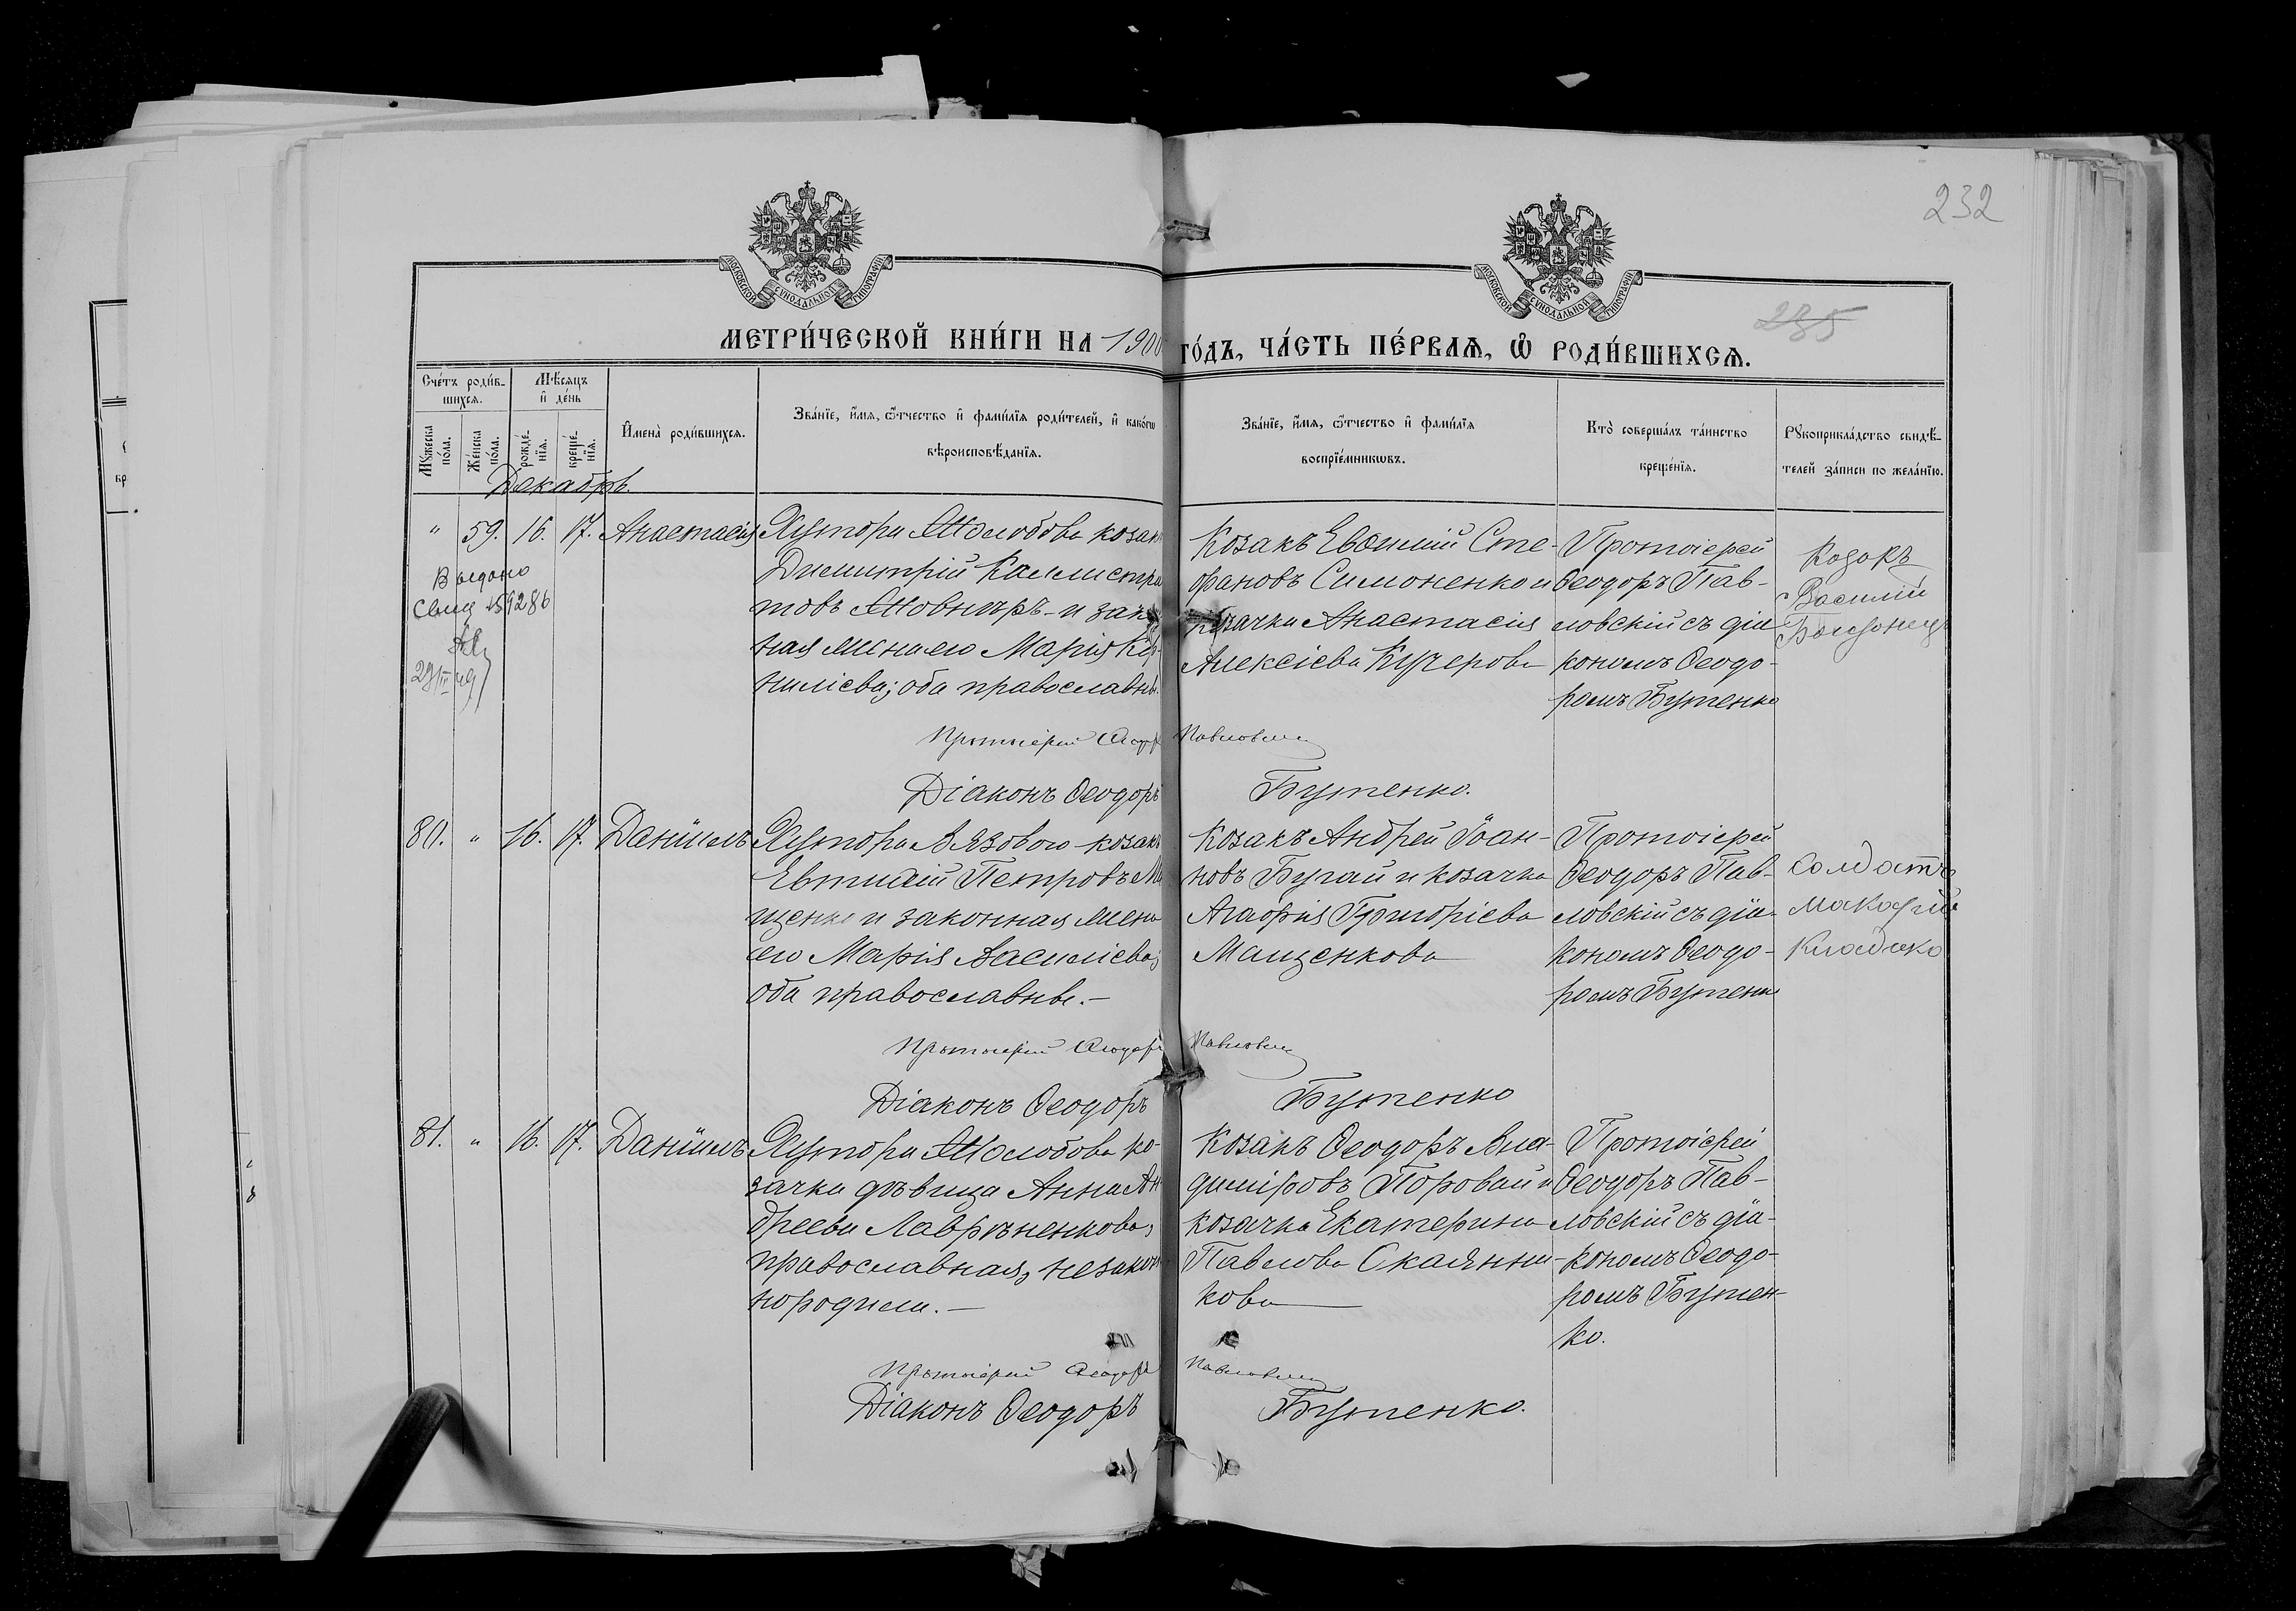 232
МОСКОВСКОЙ СѴНОДАЛЬНОЙ ТИПОГРАФІИ
МОСКОВСКОЙ СѴНОДАЛЬНОЙ ТИПОГРАФІИ
235
МЕТРИ́ЧЕСКОЙ КНИ́ГИ НА 1900 ГО́ДЪ, ЧА́СТЬ ПЕ́РВАЯ, Ѡ҆ РОДИ́ВШИХСЯ.
Сче́тъ роди́в-
шихся.
Мѣ́сяцъ
и҆ де́нь
Мꙋ́жеска
по́ла.
Же́нска
по́ла.
рожде́-
нїя.
креще́-
нїя.
И҆мена̀ роди́вшихся.
Зва́нїе, и҆́мя, ѻ҆́тчество и҆ фами́лїя роди́телей, и҆ како́гѡ
вѣроисповѣ́данїя.
Зва́нїе, и҆́мя, ѻ҆́тчество и҆ фами́лїя
воспрїе́мникѡвъ.
Кто̀ соверша́лъ та́инство
креще́нїя.
Рꙋкоприкла́дство свидѣ́-
телей за́писи по жела́нїю.
Декабрь.
" 59. 16. 17. Анастасія
Хутора Жолобова козакъ
Димитрій Каллистра
товъ Жовнѣръ и закон
ная жена его Марія Кор-
нилієва; оба православны.
Козакъ Евѳимій Сте-
фановъ Симоненко и
козачка Анастасія
Алексіева Кучерова
Протоіерей
Ѳеодоръ Пав-
ловскій съ діа
кономъ Ѳеодо-
ромъ Бутенко
Козакъ
Василій
Выдано
свид 159286
29/III 49
Протоіерей Ѳеодоръ Павловскій
Діаконъ Ѳеодоръ Бутенко.
80. " 16. 17. Даніилъ
Хутора Вязового козакъ
Евтихій Петровъ Ма
щенко и законная жена
его Марія Василіева;
оба православны.-
Козакъ Андрей Іоан-
новъ Бугай и козачка
Агафія Григоріева
Мащенкова
Протоіерей
Ѳеодоръ Пав-
ловскій съ діа-
кономъ Ѳеодо-
ромъ Бутенко
Солдатъ
Макарій
Протоіерей Ѳеодоръ Павловскій
Діаконъ Ѳеодоръ Бутенко
81. " 16. 17. Даніилъ
Хутора Жолобова ко-
зачка дѣвица Анна Ан
дреева Лаврѣненкова,
православная, незакон
нородном.-
Козакъ Ѳеодоръ Вла-
диміровъ Поровай и
козачка Екатерина
Павлова Скаянни-
кова
Протоіерей
Ѳеодоръ Пав-
ловскій съ діа-
кономъ Ѳеодо-
ромъ Бутен-
ко.
Протоіерей Ѳеодоръ Павловскій
Діаконъ Ѳеодоръ Бутенко.